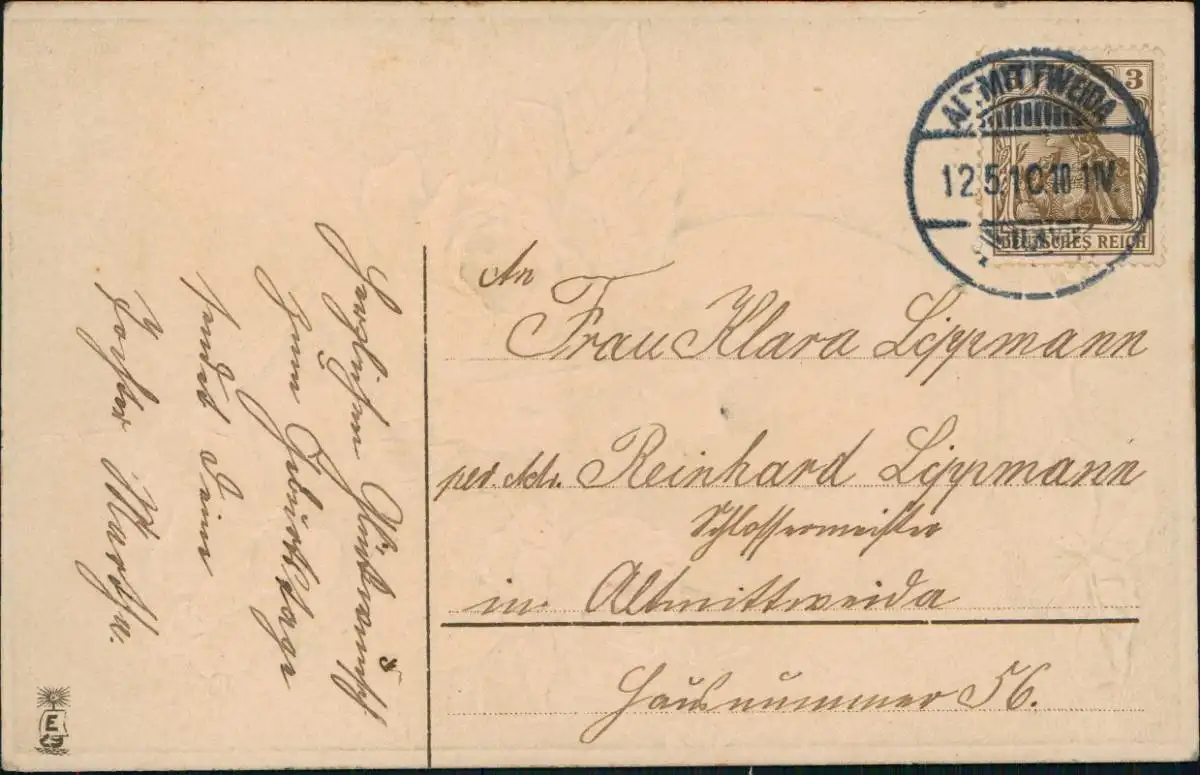 Herzlichen Glückwunsch
zum Geburtstage
sendet Dein
Tochter Marthe.
An
Frau Klara Lippmann
per. Adr. Reinhard Lippmann
Schlossermeister
in Altmittweida
Hausnummer 56.
ALTMITTWEIDA
12.5.10 10-11V.
3
DEUTSCHES REICH
E